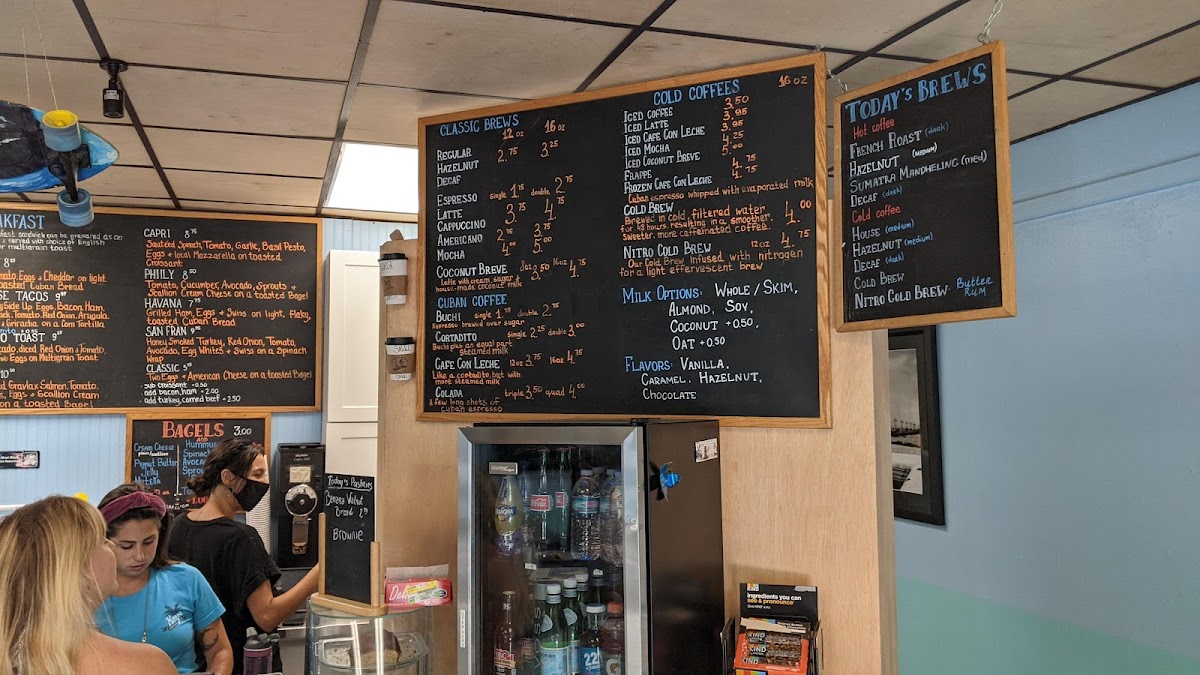 BREAKFAST
served with choice of English
or multigrain toast
Tomato, Eggs & Cheddar on light
toasted Cuban Bread
TACOS 9
Side Up Eggs, Bacon, Ham,
Tomato, Red Onion, Arugula,
& Sriracha on a Corn Tortilla
TOAST 9
Avocado, diced Red Onion & Tomato,
Eggs on Multigrain Toast
Gravlax Salmon, Tomato,
Eggs & Scallion Cream
on a toasted Bagel
CAPRI 8.75
Sauteed Spinach, Tomato, Garlic, Basil Pesto,
Eggs + local Mozzarella on toasted
Croissant
PHILY 8.50
Tomato, Cucumber, Avocado, Sprouts +
Scallion Cream Cheese on a toasted Bagel
HAVANA 7.75
Grilled Ham, Eggs + Swiss on light, flaky,
toasted Cuban Bread
SAN FRAN 9.75
Honey Smoked Turkey, Red Onion, Tomato,
Avocado, Egg Whites + Swiss on a Spinach
Wrap
CLASSIC 5
Two Eggs + American Cheese on a toasted Bagel
sub croissant +0.50
add bacon, ham +2.00
add turkey, corned beef +2.50
BAGELS AND 3.00
Cream Cheese
plain/scallion
Peanut Butter
Jelly
Nutella
Hummus
Today's Pastries
Banana Walnut
Bread
Brownie
CLASSIC BREWS
12 oz 16 oz
REGULAR 2.75 3.25
HAZELNUT
DECAF
ESPRESSO single 1.75 double 2.75
LATTE 3.75 4.75
CAPPUCCINO
AMERICANO 2.75 3.25
MOCHA 4.00 5.00
COCONUT BREVE 12oz 3.50 16oz 4.75
Latte with cream, sugar +
house-made coconut milk
CUBAN COFFEE
BUCHI single 1.75 double 2.75
Espresso brewed over sugar
CORTADITO single 2.25 double 3.00
Buchi plus an equal part
steamed milk
CAFE CON LECHE 12oz 3.75 16oz 4.75
Like a cortadito, but with
more steamed milk
COLADA triple 3.50 quad 4.00
A few long shots of
cuban espresso
COLD COFFEES 16 oz
ICED COFFEE 3.50
ICED LATTE 3.95
ICED CAFE CON LECHE 3.95
ICED MOCHA 4.25
ICED COCONUT BREVE 5.00
FRAPPE 4.75
FROZEN CAFE CON LECHE 4.75
Cuban espresso whipped with evaporated milk
COLD BREW 4.00
Brewed in cold, filtered water
for 48 hours resulting in a smoother,
sweeter, more caffeinated coffee.
NITRO COLD BREW 12oz 4.75
Our Cold Brew infused with nitrogen
for a light effervescent brew
MILK OPTIONS: WHOLE / SKIM,
ALMOND, SOY,
COCONUT +0.50,
OAT +0.50
FLAVORS: VANILLA,
CARAMEL, HAZELNUT,
CHOCOLATE
TODAY'S BREWS
Hot coffee
FRENCH ROAST (dark)
HAZELNUT (medium)
SUMATRA MANDHELING (med)
DECAF (dark)
Cold coffee
HOUSE (medium)
HAZELNUT (medium)
DECAF (dark)
COLD BREW
NITRO COLD BREW: Butter
Rum
KIND
ingredients you can
see & pronounce
KIND
KIND